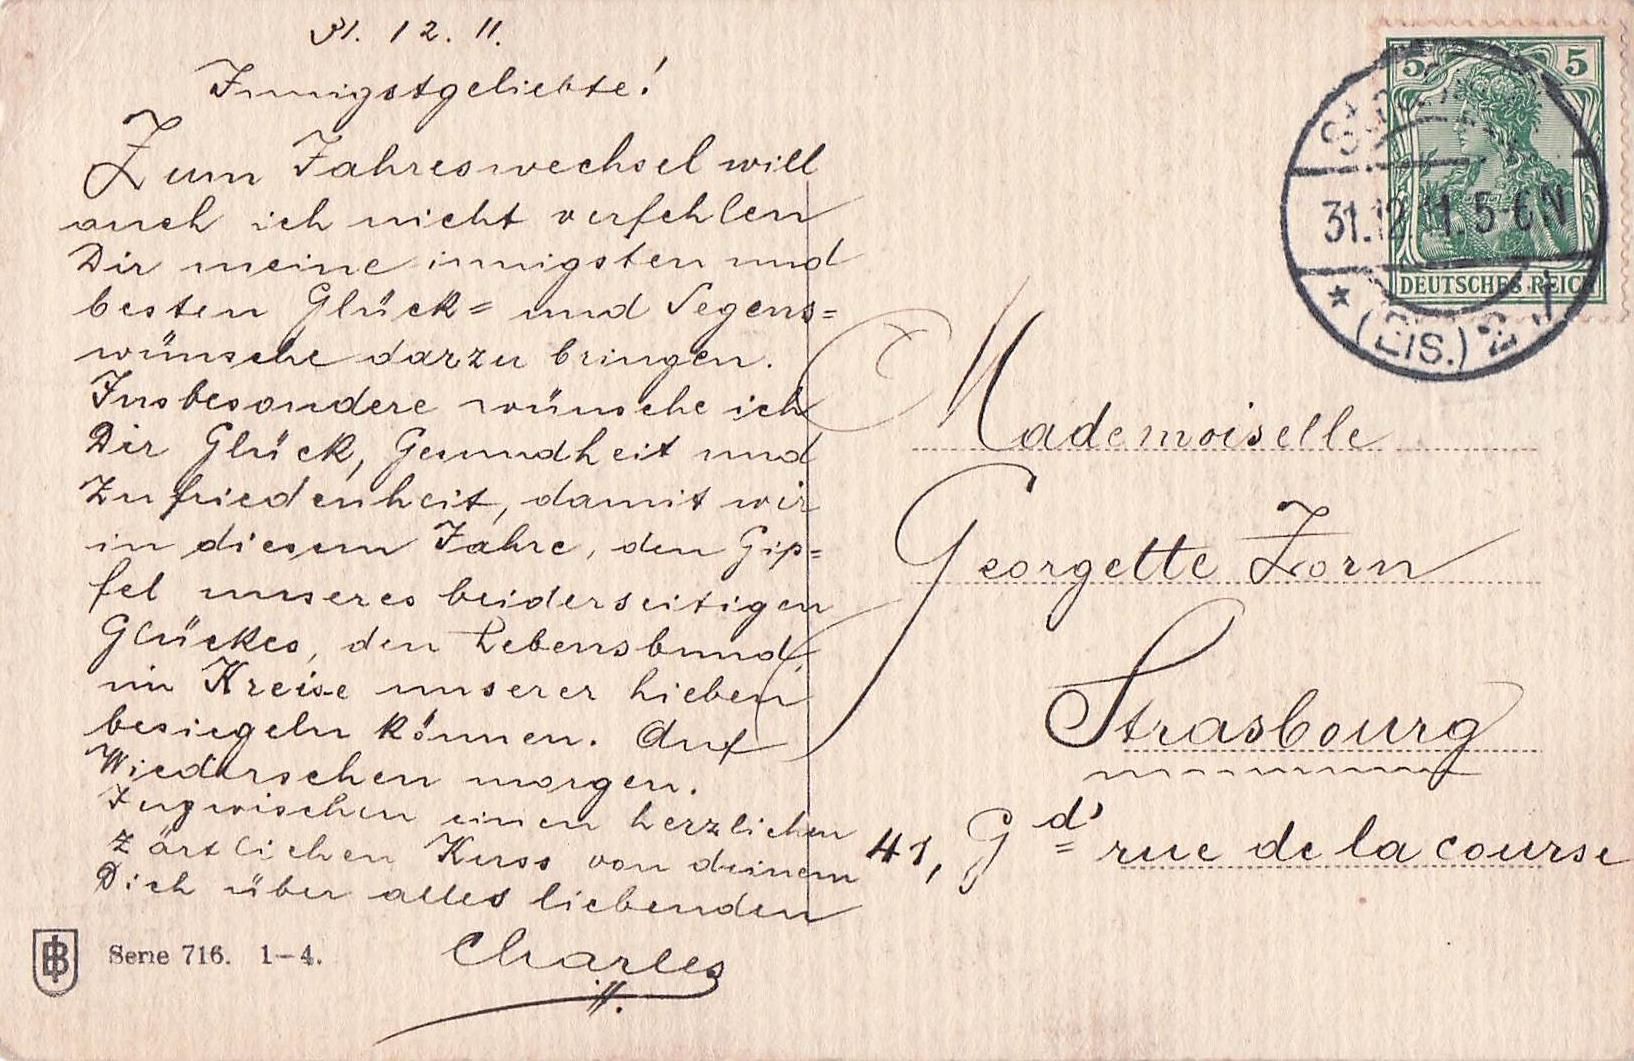 31. 12. 11.
Innnigstgeliebte!
Zum Jahreswechsel will
auch ich nicht verfehlen
Dir meine innigsten und
besten Glück= und Segens=
wünsche darzu bringen.
Insbesondere wünsche ich
Dir Glück, Gesundheit und
Zufriedenheit, damit wir
in diesem Jahre, den Gip=
fel unseres beiderseitigen
Glückes, den Lebensbund,
im Kreise unserer Lieben
besiegeln können. Auf
Wiedersehen morgen.
Inzwischen einen herzlichen
zärtlichen Kuss von deinem
Dich über alles liebenden
Charles
Serie 716. 1-4.
5 5
31.12.11.5-6N
DEUTSCHES REICH
* (Els.) 2
Mademoiselle
Georgette Zorn
Strasbourg
41, Gd' rue de la course